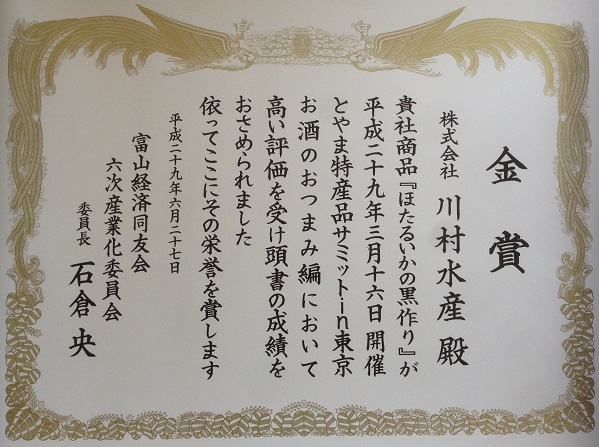 金賞
株式会社 川村水産 殿
貴社商品『ほたるいかの黒作り』が
平成二十九年三月十六日開催
とやま特産品サミット・in東京
お酒のおつまみ編において
高い評価を受け頭書の成績を
おさめられました
依ってここにその栄誉を賞します
平成二十九年六月二十七日
富山経済同友会
六次産業化委員会
委員長 石倉 央